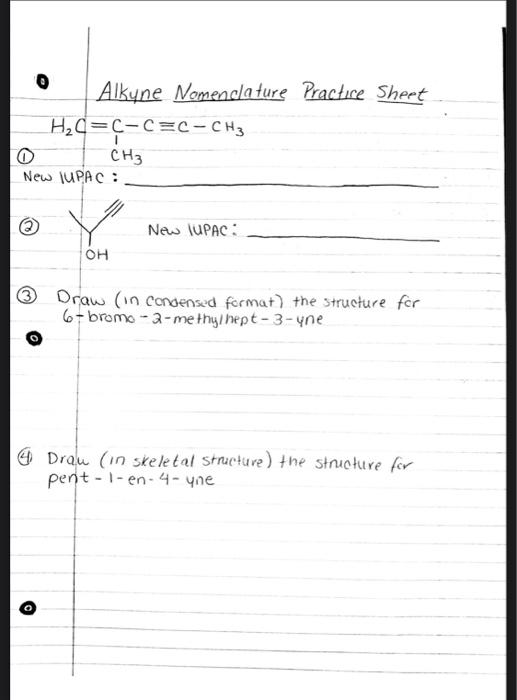 Alkyne Nomenclature Practice Sheet
H₂C=C-C≡C-CH₃
CH₃
①
New IUPAC :
②
New IUPAC :
OH
③ Draw (in condensed format) the structure for
6-bromo-2-methylhept-3-yne
④ Draw (in skeletal structure) the structure for
pent-1-en-4-yne